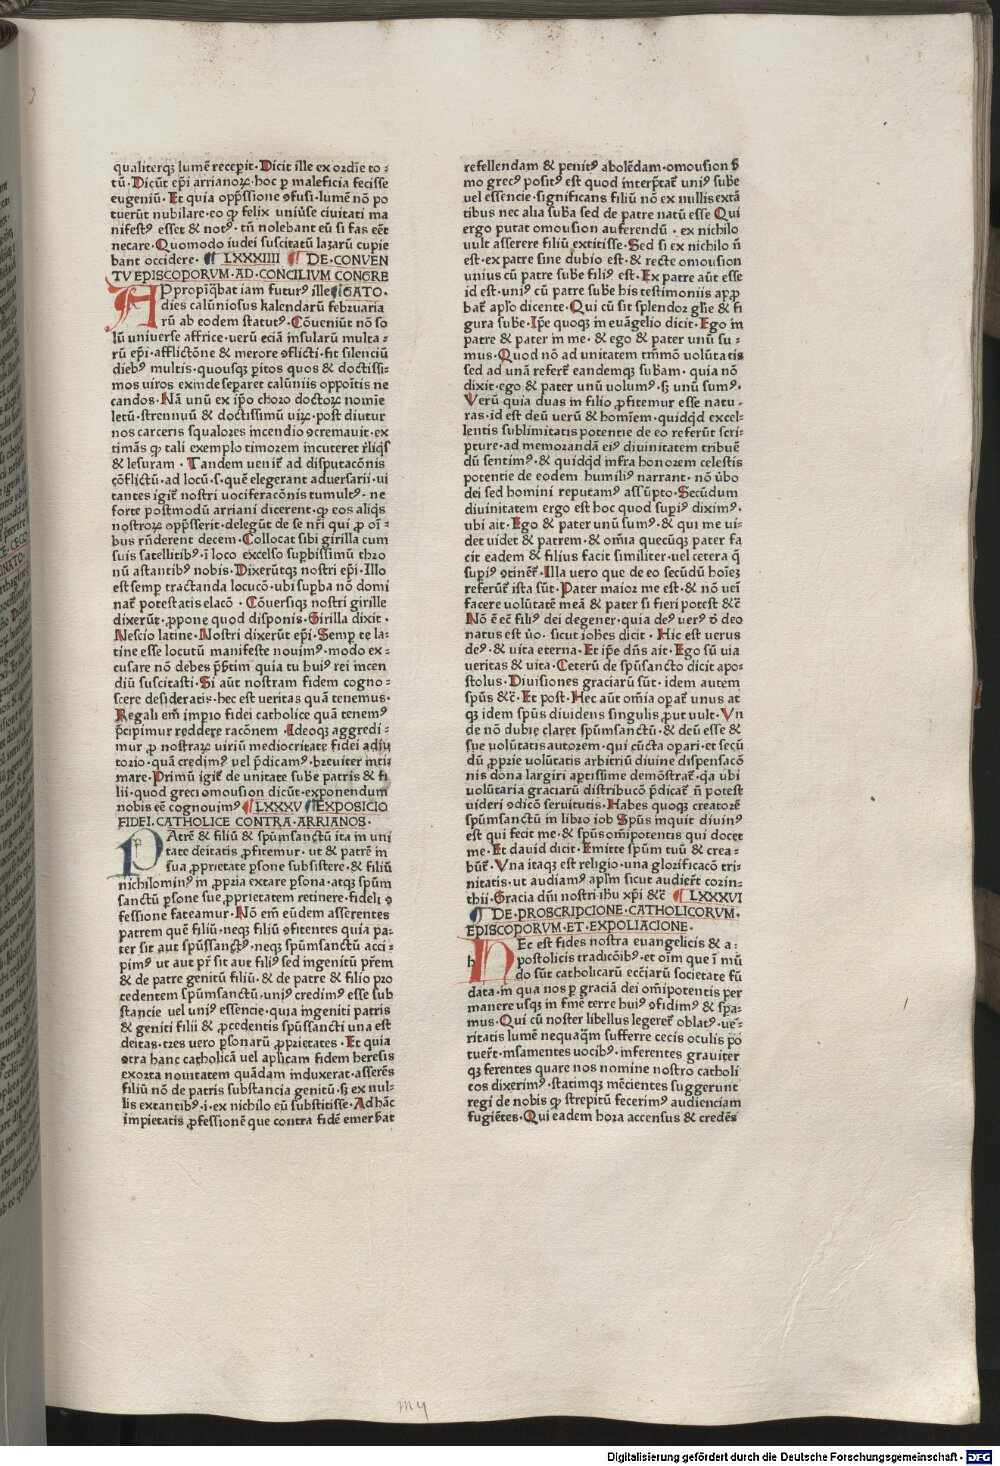 qualiterqꝫ lumē recepit· Dicit ille ex ordīe to⸗
tū· Dicūt ep̄i arrianoꝝ· hoc ꝑ maleficia fecisse
eugeniū· Et quia opp̄ssione ꝯfusi· lumē nō po
tuerūt nubilare· eo ꝙ felix uniūse ciuitati ma
nifestꝰ esset & notꝰ· tn̄ nolebant eū si fas eēt
necare· Quomodo iudei suscitatū lazarū cupie
bant occidere· LXXXIIII DE·CONVEN
TV EPISCOPORVM·AD·CONCILIVM CONGRE
APpropīq̄bat iam futurꝰ ille GATO·
dies calūniosus kalendarū februaria
rū ab eodem statutꝰ· Cōueniūt nō so
lū uniuerse affrice· uerū eciā insularū multa⸗
rū ep̄i· afflictōne & merore ꝯflicti· fit silenciū
diebꝰ multis· quousqꝫ pitos quos & doctissi⸗
mos uiros exinde separet calūniis oppoītis ne
candos· Nā unū ex ip̄o choro doctoꝝ nomīe
letū· strennuū & doctissimū uiꝝ· post diutur
nos carceris squalores incendio ꝯcremauit· ex
timās ꝙ tali exemplo timorem incuteret r̄liq̄s
& lesuram · Tandem uenit̄ ad disputacōnis
cōflictū· ad locū·s· quē elegerant aduersarii· ui
tantes igit̄ nostri uociferacōnis tumultꝰ· ne
forte postmodū arriani dicerent· ꝙ eos aliq̄s
nostroꝝ opp̄sserit· delegūt de se nr̄i qui ꝓ oī⸗
bus rn̄derent decem· Collocat sibi girilla cum
suis satellitibꝰ· ī loco excelso supbissimū thro
nū astantibꝰ nobis· Dixerūtqꝫ nostri ep̄i· Illo
est semp tractanda locucō· ubi supba nō domi
nat̄ potestatis elacō · Cōuersiqꝫ nostri girille
dixerūt· ꝓpone quod disponis· Girilla dixit ·
Nescio latine· Nostri dixerūt ep̄i· Semp te la⸗
tine esse locutū manifeste nouimꝰ· modo ex⸗
cusare nō debes p̄s̄tim quia tu huiꝰ rei incen
diū suscitasti· Si aūt nostram fidem cogno⸗
scere desideratis· hec est ueritas quā tenemus·
Regali em̄ impio fidei catholice quā tenemꝰ
p̄cipimur reddere racōnem· Ideoqꝫ aggredi⸗
mur ꝓ nostraꝝ uiriū mediocritate fidei adiu
torio· quā credimꝰ uel p̄dicamꝰ· breuiter inti⸗
mare· Primū igit̄ de unitate sub̄e patris & fi
lii· quod greci omousion dicūt· exponendum
nobis eē cognouimꝰ LXXXV EXPOSICIO
FIDEI· CATHOLICE CONTRA·ARRIANOS·
PAtrē & filiū & spūmsanctū ita in uni
tate deitatis ꝓfitemur· ut & patrē in
sua ꝓprietate psone subsistere· & filiū
nichilominꝰ in ꝓpria extare psona· atqꝫ spūm
sanctū psone sue ꝓprietatem retinere· fideli ꝯ
fessione fateamur· Nō em̄ eūdem asserentes
patrem quē filiū· neqꝫ filiū ꝯfitentes quia pa⸗
ter sit aut spūssanctꝰ· neqꝫ spūmsanctū acci⸗
pimꝰ ut aut pr̄ sit aut filiꝰ sed ingenitū pr̄em
& de patre genitū filiū· & de patre & filio pro
cedentem spūmsanctū· uniꝰ credimꝰ esse sub
stancie uel uniꝰ essencie· quia ingeniti patris
& geniti filii & ꝓcedentis spūssancti una est
deitas· tres uero psonarū ꝓprietates· Et quia
ꝯtra hanc catholicā uel ap̄licam fidem heresis
exorta nouitatem quādam induxerat· asserēs
filiū nō de patris substancia genitū· sꝫ ex nul⸗
lis extantibꝰ·i· ex nichilo eū substitisse· Ad hāc
impietatis ꝓfessionē que contra fidē emers̄at
refellendam & penitꝰ abolēdam· omousion
mo grecꝰ positꝰ est quod interp̄tat̄ uniꝰ sub̄e
uel essencie· significans filiū nō ex nullis extā
tibus nec alia sub̄a sed de patre natū esse Qui
ergo putat omousion auferendū · ex nichilo
uult asserere filiū extitisse· Sed si ex nichilo n̄
est· ex patre sine dubio est· & recte omousion
unius cū patre sube filiꝰ est· Ex patre aūt esse
id est· uniꝰ cū patre sube his testimoniis app̄
bat̄ apl̄o dicente· Qui cū sit splendor gl̄ie & fi
gura sub̄e· Ip̄e quoqꝫ in euāgelio dicit· Ego in
patre & pater in me· & ego & pater unū su⸗
mus· Quod nō ad unitatem tm̄mō uolūtatis
sed ad unā refert̄ eandemqꝫ sub̄am· quia nō
dixit· ego & pater unū uolumꝰ· sꝫ unū sumꝰ·
Verū quia duas in filio ꝓfitemur esse natu⸗
ras· id est deū uerū & homīem· quidq̄d excel⸗
lentis sublimitatis potentie de eo referūt scri⸗
pture· ad memorandā eiꝰ diuinitatem tribuē
dū sentimꝰ· & quidq̄d infra honorem celestis
potentie de eodem humiliꝰ narrant· nō ūbo
dei sed homini reputamꝰ assūpto· Secūdum
diuinitatem ergo est hoc quod supiꝰ diximꝰ·
ubi ait· Ego & pater unū sumꝰ· & qui me ui⸗
det uidet & patrem· & om̄ia quecūqꝫ pater fa
cit eadem & filius facit similiter· uel cetera q̄
supiꝰ ꝯtinet̄· Illa uero que de eo secūdū hoīeꝫ
referūt̄ ista sūt· Pater maior me est· & nō uēi
facere uolūtatē meā & pater si fieri potest &c̄
Nō ē eē filiꝰ dei degener· quia deꝰ uerꝰ deo
natus est ūo· sicut ioh̄es dicit · Hic est uerus
deꝰ· & uita eterna· Et ip̄e dn̄s ait· Ego sū uia
ueritas & uita· Ceterū de spūsancto dicit apo⸗
stolus· Diuisiones graciarū sūt· idem autem
spūs &c̄· Et post· Hec aūt om̄ia opat̄ unus at
qꝫ idem spūs diuidens singulis ꝓut uult· Vn
de nō dubie claret spūmsanctū· & deū esse &
sue uolūtatis autorem· qui cūcta opari· et secū
dū ꝓprie uolūtatis arbitriū diuine dispensacō
nis dona largiri aptissime demōstrat̄· q̄a ubi
uolūtaria graciarū distribucō p̄dicat̄ n̄ potest
uideri ꝯdicō seruitutis· Habes quoqꝫ creatorē
spūmsanctū in libro iob Spūs inquit diuinꝰ
est qui fecit me· & spūs om̄ipotentis qui docet
me· Et dauid dicit· Emitte spūm tuū & crea⸗
būt̄· Vna itaqꝫ est religio· una glorificacō tri⸗
nitatis· ut audiamꝰ apl̄m sicut audiert̄ corin⸗
thii· Gracia dn̄i nostri ih̄u xp̄i &c̄ LXXXVI
DE·PROSCRIPCIONE·CATHOLICORVM·
EPISCOPORVM·ET·EXPOLIACIONE·
HEc est fides nostra euangelicis & a⸗
postolicis tradicōibꝰ· et oīm que ī mū
do sūt catholicarū ecc̄iarū societate fū
data· in qua nos ꝑ graciā dei om̄ipotentis per
manere usqꝫ in finē terre huiꝰ ꝯfidimꝰ & spa⸗
mus· Qui cū noster libellus legeret̄ oblatꝰ· ue⸗
ritatis lumē nequaq̄m sufferre cecis oculis po
tuer̄t· insamentes uocibꝰ· inferentes grauiter
qꝫ ferentes quare nos nomine nostro catholi
cos dixerimꝰ· statimqꝫ mēcientes suggerunt
regi de nobis ꝙ strepitū fecerimꝰ audienciam
fugiētes· Qui eadem hora accensus & credēs
m 4
Digitalisierung gefördert durch die Deutsche Forschungsgemeinschaft · DFG